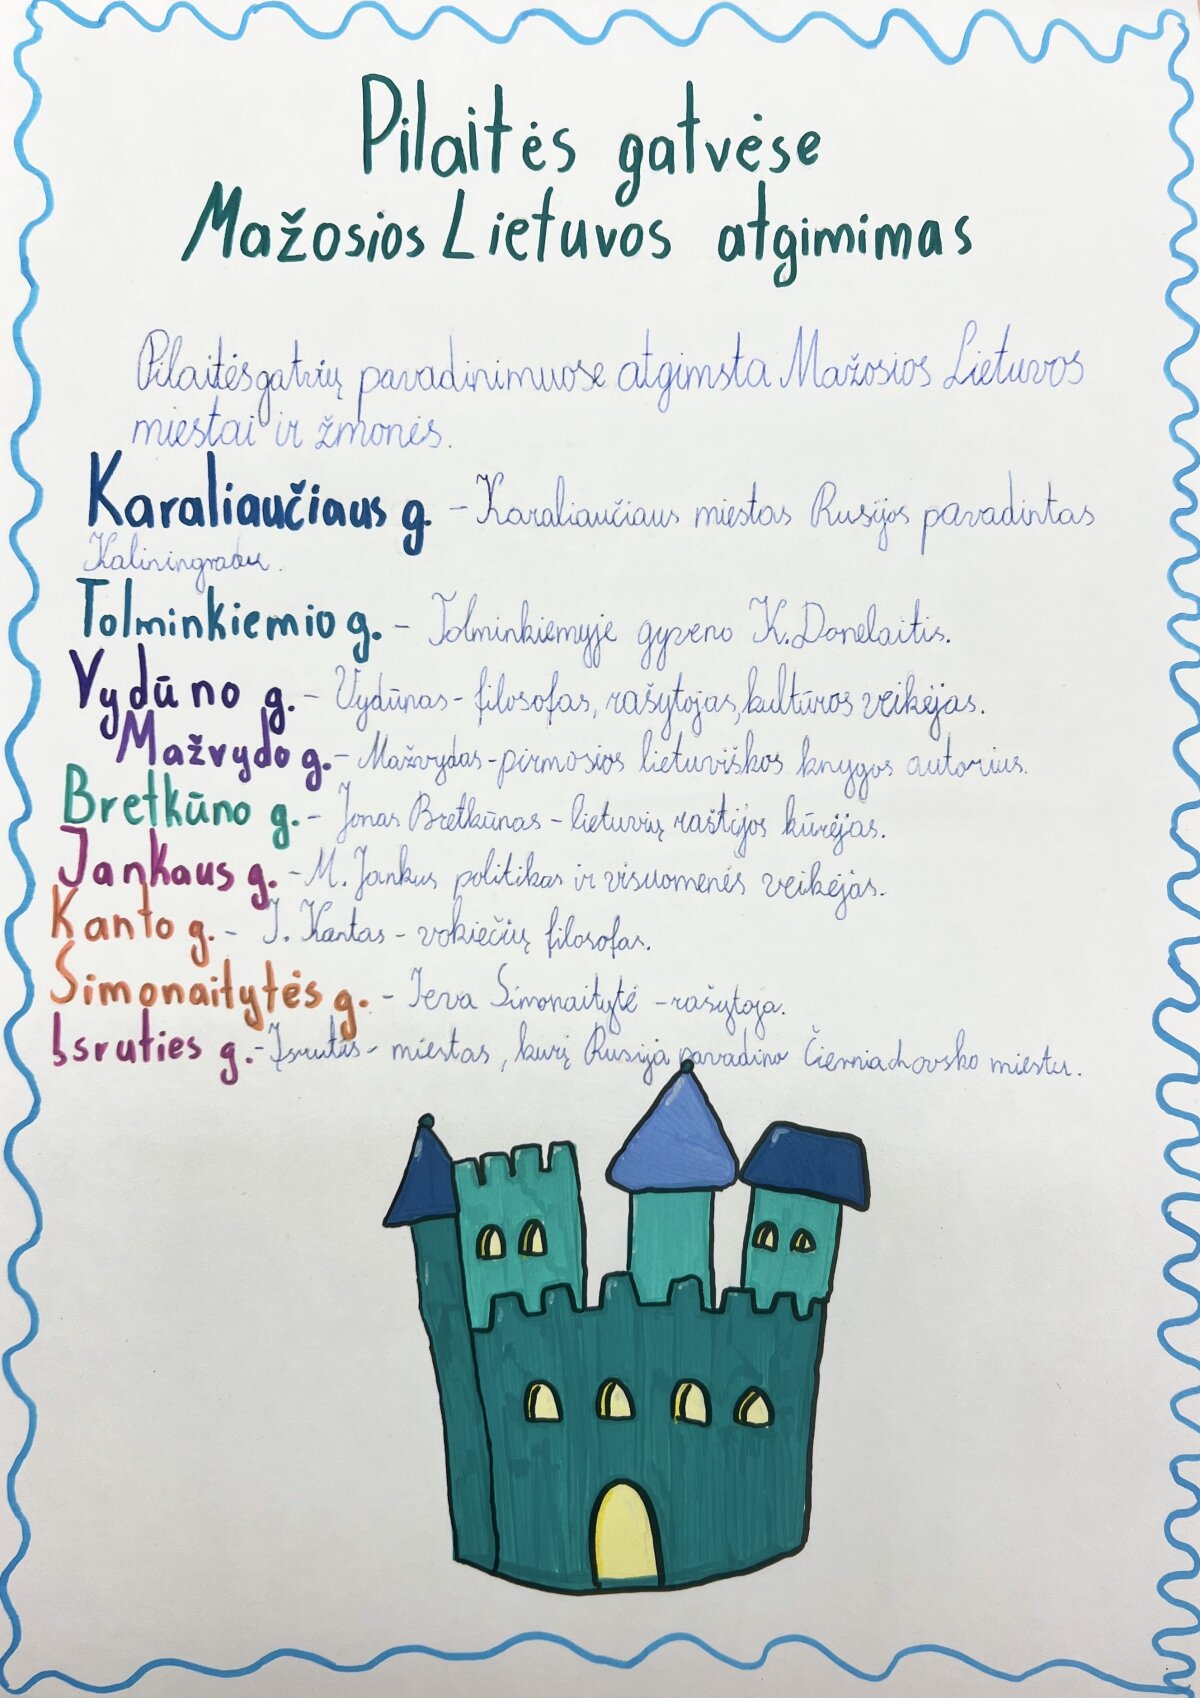 Pilaitės gatvėse
Mažosios Lietuvos atgimimas
Pilaitės gatvių pavadinimuose atgimsta Mažosios Lietuvos
miestai ir žmonės.
Karaliaučiaus g. - Karaliaučiaus miestas Rusijos pavadintas
Kaliningradu.
Tolminkiemio g. - Tolminkiemyje gyveno K. Donelaitis.
Vydūno g. - Vydūnas - filosofas, rašytojas, kultūros veikėjas.
Mažvydo g. - Mažvydas - pirmosios lietuviškos knygos autorius.
Bretkūno g. - Jonas Bretkūnas - lietuvių raštijos kūrėjas.
Jankaus g. - M. Jankus politikas ir visuomenės veikėjas.
Kanto g. - I. Kantas - vokiečių filosofas.
Simonaitytės g. - Ieva Simonaitytė - rašytoja.
Įsruties g. - Įsrutis - miestas, kurį Rusija pavadino Černiachovsko miestu.